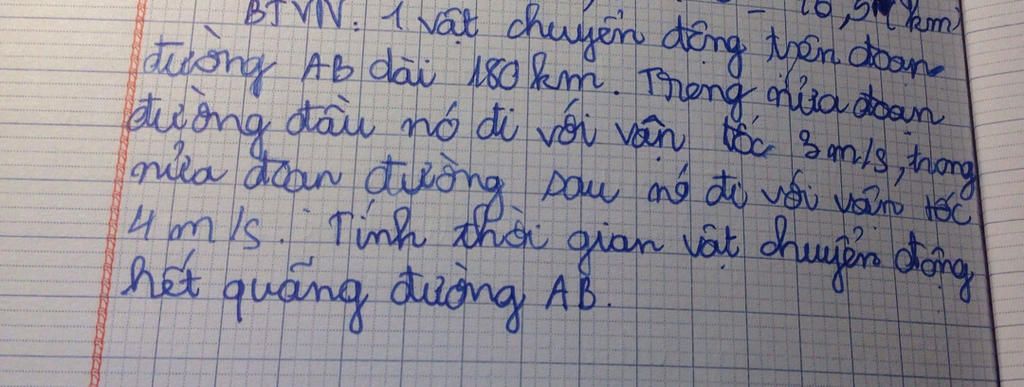 16,5 (km)
BTVN: 1 vật chuyển động trên đoạn
đường AB dài 180 km. Trong nửa đoạn
đường đầu nó đi với vận tốc 3 m/s, trong
nửa đoạn đường sau nó đi với vận tốc
4 m/s. Tính thời gian vật chuyển động
hết quãng đường AB.